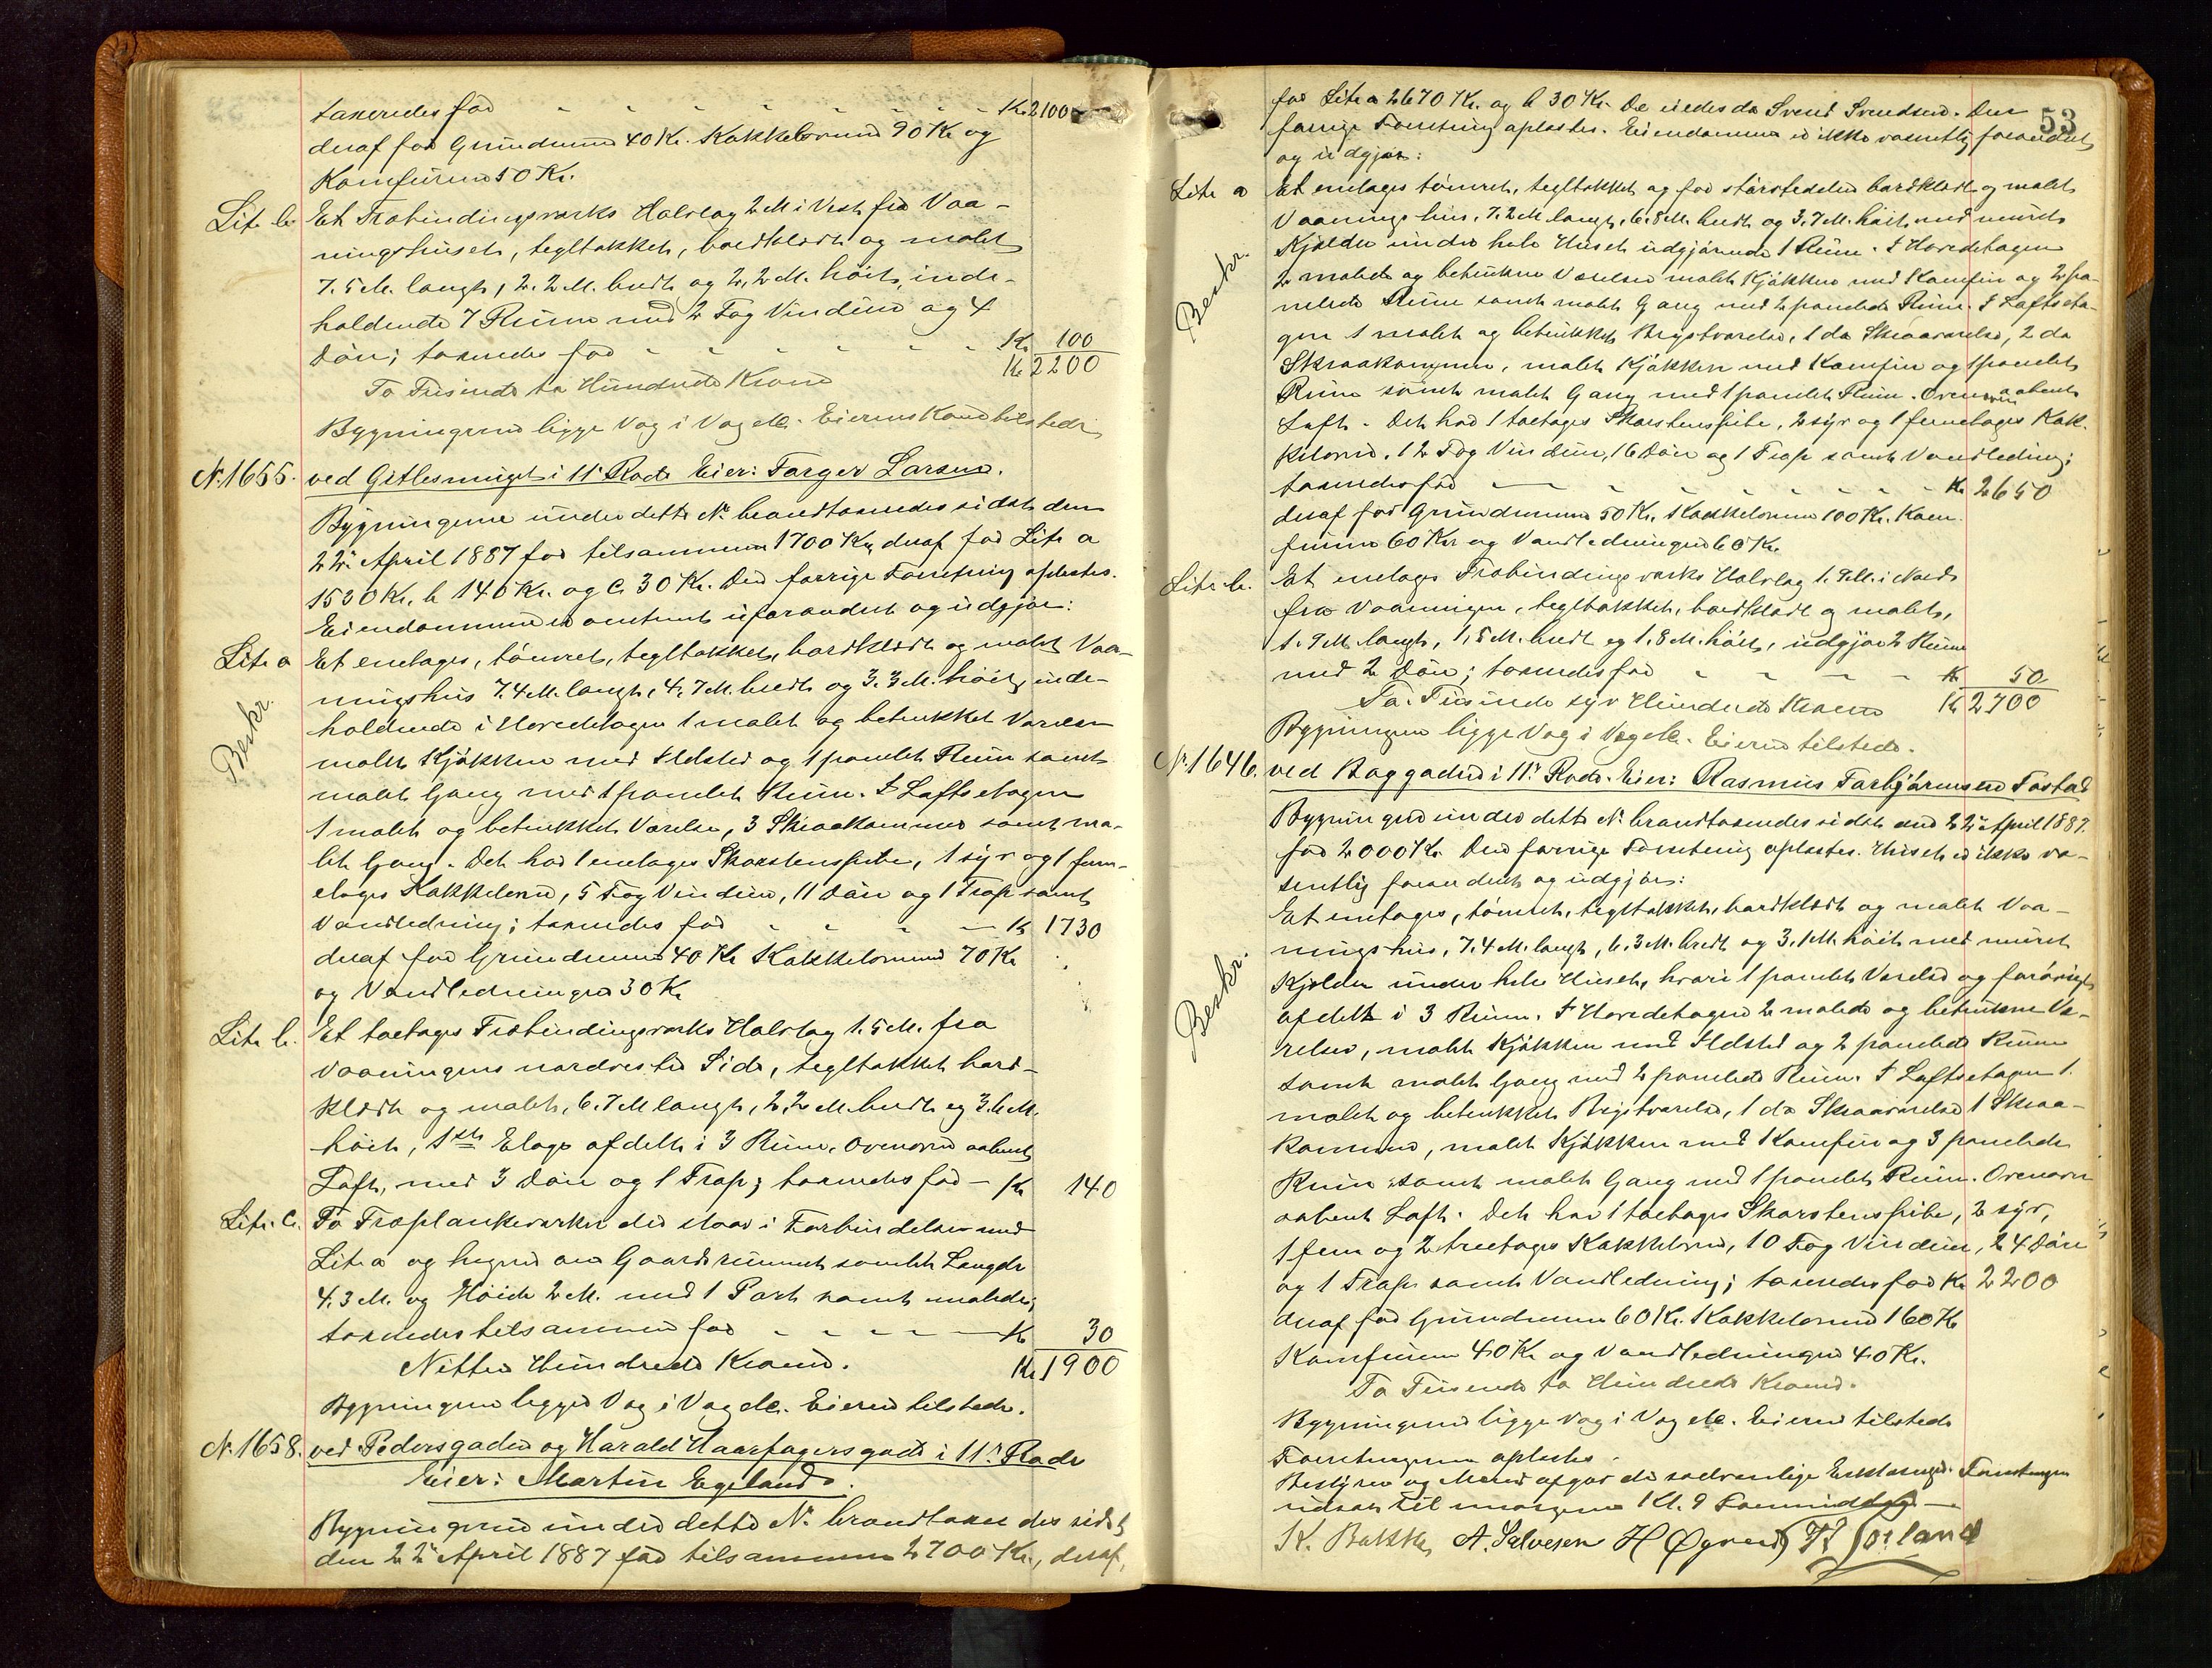 taxeredes for - - - - - - - Kr. 2100
deraf for Grundmuren 40 Kr. Kakkelovnene 90 Kr. og
Komfuren 50 Kr.
Litr. b. Et Træbindingsværks Halvtag 2 M. i Vest fra Vaa-
ningshuset, tegltækket, bordklædt og malet
7.5 M. langt, 2.2 M. bredt og 2.2 M. høit, inde-
holdende 7 Rum med 2 Fag Vinduer og 4
Døre; taxeredes for - - - - - - Kr. 100
Kr. 2200
To Tusinde to Hundrede Kroner
Bygningerne ligger Væg i Væg etc. Eierens Kone tilstede
N. 1655. ved Gitlesmuget i 11te Rode Eier: Torger Larsen.
Bygningerne under dette No. brandtaxeredes sidst den
22de April 1887 for tilsammen 1700 Kr., deraf for Litr. a
1530 Kr., b 140 Kr. og c. 30 Kr. Den forrige Forretning oplæstes.
Eiendommen er omtrent uforandret og udgjør:
Litr. a Et enetages, tømret, tegltækket, bordklædt og malet Vaa-
ningshus 7.4 M. langt, 4.7 M. bredt og 3.3 M. høit, inde-
Beskr.
holdende i Hovedetagen 1 malet og betrukket Værelse
malet Kjøkken med Ildsted og 1 panelet Rum samt
malet Gang med 1 panelet Rum. I Loftsetagen
1 malet og betrukket Værelse, 3 Skraakammer samt ma-
let Gang. Det har 1 enetages Skorstenspibe, 1 syv og 1 fem-
etages Kakkelovn, 5 Fag Vinduer, 11 Døre og 1 Trap samt
Vandledning; taxeredes for - - - - Kr 1730
deraf for Grundmuren 40 Kr Kakkelovnene 70 Kr
og Vandledningen 30 Kr
Litr. b. Et toetages Træbindingsværks Halvtag 1.5 M. fra
Vaaningens nordvestre Side, tegltækket bord-
klædt og malet, 6.7 M langt, 2.2 M. bredt og 3.6 M.
høit, 1ste Etage afdelt i 3 Rum, ovenover aabent
Loft, med 3 Døre og 1 Trap; taxeredes for - Kr 140
Litr. c. To Træplankeværker der staar i Forbindelse med
Litr a og hegner om Gaardsrummet samlet Længde
4.3 M. og Høide 2 M. med 1 Port samt malede;
taxeredes tilsammen for - - - - Kr 30
Nitten Hundrede Kroner. Kr 1900
Bygningerne ligger Væg i Væg etc. Eieren tilstede.
N. 1658. ved Pedersgaden og Harald Haarfagersgade i 11te Rode
Eier: Martin Egeland.
Bygningerne under dette No. brandtaxeredes sidst
den 22de April 1887 for tilsammen 2700 Kr., deraf
53
for Litr a 2670 Kr. og b 30 Kr. De eiedes da Svend Svendsen. Den
forrige Forretning oplæstes. Eiendommen er ikke væsentlig forandret
og udgjør:
Litr. a Et enetages tømret, tegltækket og for størstedelen bordklædt og malet
Vaaningshus, 7.2 M. langt, 6.8 M. bredt og 3.7 M. høit med muret
Kjælder under hele Huset udgjørende 1 Rum. I Hovedetagen
Beskr.
2 malede og betrukne Værelser malet Kjøkken med Komfur og 2 pa-
nelede Rum samt malet Gang med 2 panelede Rum. I Loftseta-
gen 1 malet og betrukket Kvistværelse, 1 do Skraaværelse, 2 do
Skraakammer, malet Kjøkken med Komfur og 1 panelet
Rum samt malet Gang med 1 panelet Rum. Ovenover aabent
Loft. Det har 1 toetages Skorstenspibe, 2 syv og 1 femetages Kak-
kelovn, 12 Fag Vinduer, 16 Døre og 1 Trap samt Vandledning;
taxeredes for - - - - - - - Kr 2650
deraf for Grundmuren 50 Kr. Kakkelovnene 100 Kr. Kom-
furene 60 Kr og Vandledningen 60 Kr.
Litr. b. Et enetages Træbindingsværks Halvtag 1.9 M. i Nord
fra Vaaningen, tegltækket, bordklædt og malet,
1.9 M. langt, 1,5 M. bredt og 1.8 M. høit, udgjør 2 Rum
med 2 Døre; taxeredes for - - - - Kr 50
To Tusinde syv Hundrede Kroner Kr 2700
Bygningerne ligger Væg i Væg etc. Eieren tilstede.
N. 1646. ved Baggaden i 11te Rode. Eier: Rasmus Torbjørnsen Tastad
Bygningen under dette No. brandtaxeredes sidst den 22de April 1887.
for 2000 Kr. Den forrige Forretning oplæstes. Huset er ikke væ-
sentlig forandret og udgjør:
Et enetages, tømret, tegltækket, bordklædt og malet Vaa-
ningshus, 7.4 M. langt, 6.3 M. bredt og 3.1 M. høit med muret
Beskr.
Kjælder under hele Huset, hvori 1 panelet Værelse og forøvrigt
afdelt i 3 Rum. I Hovedetagen 2 malede og betrukne Væ-
relser, malet Kjøkken med Ildsted og 2 panelede Rum
samt malet Gang med 2 panelede Rum. I Loftsetagen 1
malet og betrukket Kvistværelse, 1 do Skraaværelse 1 Skraa-
kammer, malet Kjøkken med Komfur og 3 panelede
Rum samt malet Gang med 1 panelet Rum. Ovenover
aabent Loft. Det har 1 toetages Skorstenspibe, 2 syv,
1 fem og 2 treetages Kakkelovne, 10 Fag Vinduer, 24 Døre
og 1 Trap samt Vandledning; taxeredes for Kr 2200
deraf for Grundmuren 60 Kr. Kakkelovnene 160 Kr
Komfuren 40 Kr og Vandledningen 40 Kr.
To Tusinde to Hundrede Kroner.
Bygningerne ligger Væg i Væg etc. Eieren tilstede
Forretningen oplæstes.
Bestyrer og Mænd afgav de sædvanlige Erklæringer. Forretningen
udsat til imorgen Kl. 9 Formiddag -
K. Bakke, A. Salvesen H Øgreid H Sørland